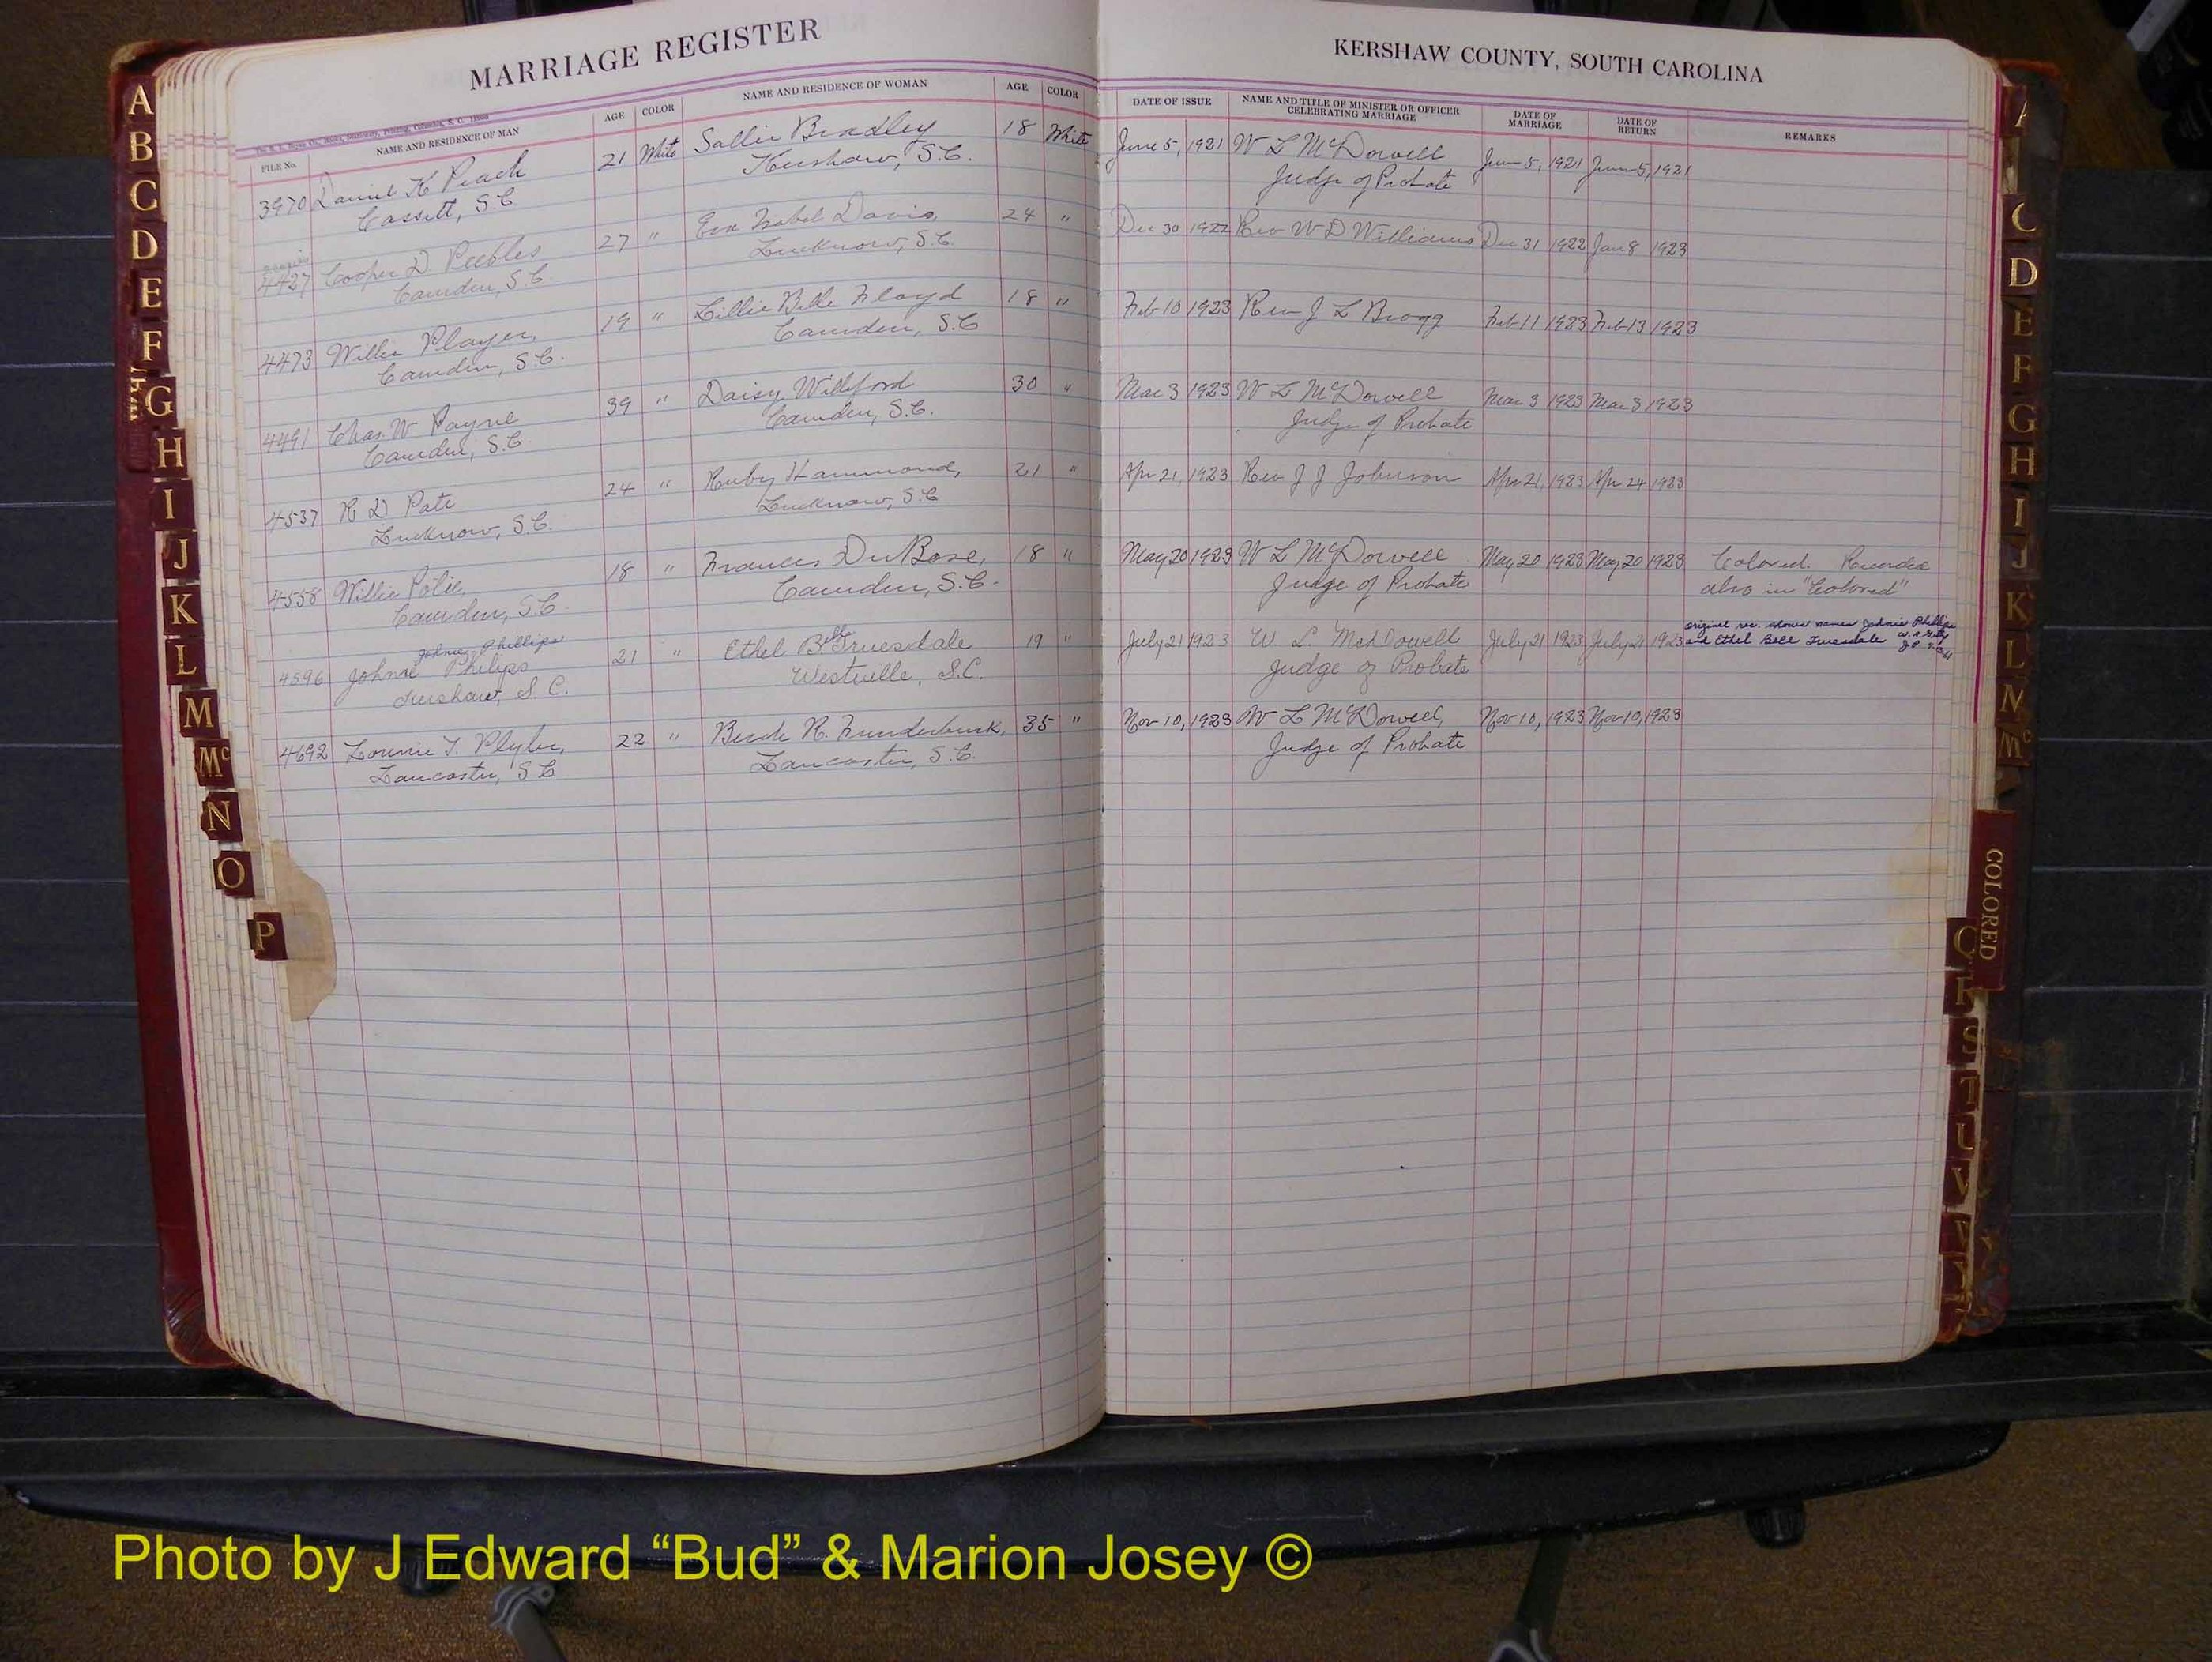 MARRIAGE REGISTER
FILE No. NAME AND RESIDENCE OF MAN AGE COLOR NAME AND RESIDENCE OF WOMAN AGE COLOR
3970 Daniel K Peach 21 White Sallie Bradley 18 White
Cassatt, S.C. Kershaw, S.C.
4427 Cooper D Peebles 27 " Eva Isabel Davis, 24 "
Camden, S.C. Lucknow, S.C.
4473 Willie Player, 19 " Lillie Belle Floyd 18 "
Camden, S.C. Camden, S.C
4491 Chas. W Payne 39 " Daisy Williford 30 "
Camden, S.C Camden, S.C.
4537 R D Pate 24 " Ruby Hammond, 21 "
Lucknow, S.C. Lucknow, S.C
4558 Willie 18 " Frances DuBose, 18 "
Camden, S.C. Camden, S.C.
Johnie Phillips
4596 Johnie Philips 21 " Ethel Bell Truesdale 19 "
Kershaw, S. C. Westville, S.C.
4692 Lonnie T. Plyler, 22 " R. Funderburk, 35 "
Lancaster, S C Lancaster, S.C.
KERSHAW COUNTY, SOUTH CAROLINA
DATE OF ISSUE NAME AND TITLE OF MINISTER OR OFFICER CELEBRATING MARRIAGE DATE OF MARRIAGE DATE OF RETURN REMARKS
June 5, 1921 W L McDowell June 5, 1921 June 5, 1921
Judge of Probate
Dec 30 1922 Rev W D Williams Dec 31 1922 Jan 8 1923
Feb 10 1923 Rev J L Bragg Feb 11 1923 Feb 13 1923
Mar 3 1923 W L McDowell Mar 3 1923 Mar 3 1923
Judge of Probate
Apr 21, 1923 Rev J J Johnson Apr 21, 1923 Apr 24 1923
May 20 1923 W L McDowell May 20 1923 May 20 1923 Colored. Recorded
Judge of Probate also in "Colored"
original rec. shows names Johnie Phillips
July 21 1923 W. L. McDowell July 21 1923 July 21 1923 and Ethel Bell Truesdale
Judge of Probate
Nov 10, 1923 W L McDowell, Nov 10, 1923 Nov 10, 1923
Judge of Probate
A
B
C
D
E
F
G
H
I
J
K
L
M
Mc
N
O
P
C
D
E
F
G
H
I
J
K
L
M
Mc
COLORED
S
T
U
V
Photo by J Edward “Bud” & Marion Josey ©